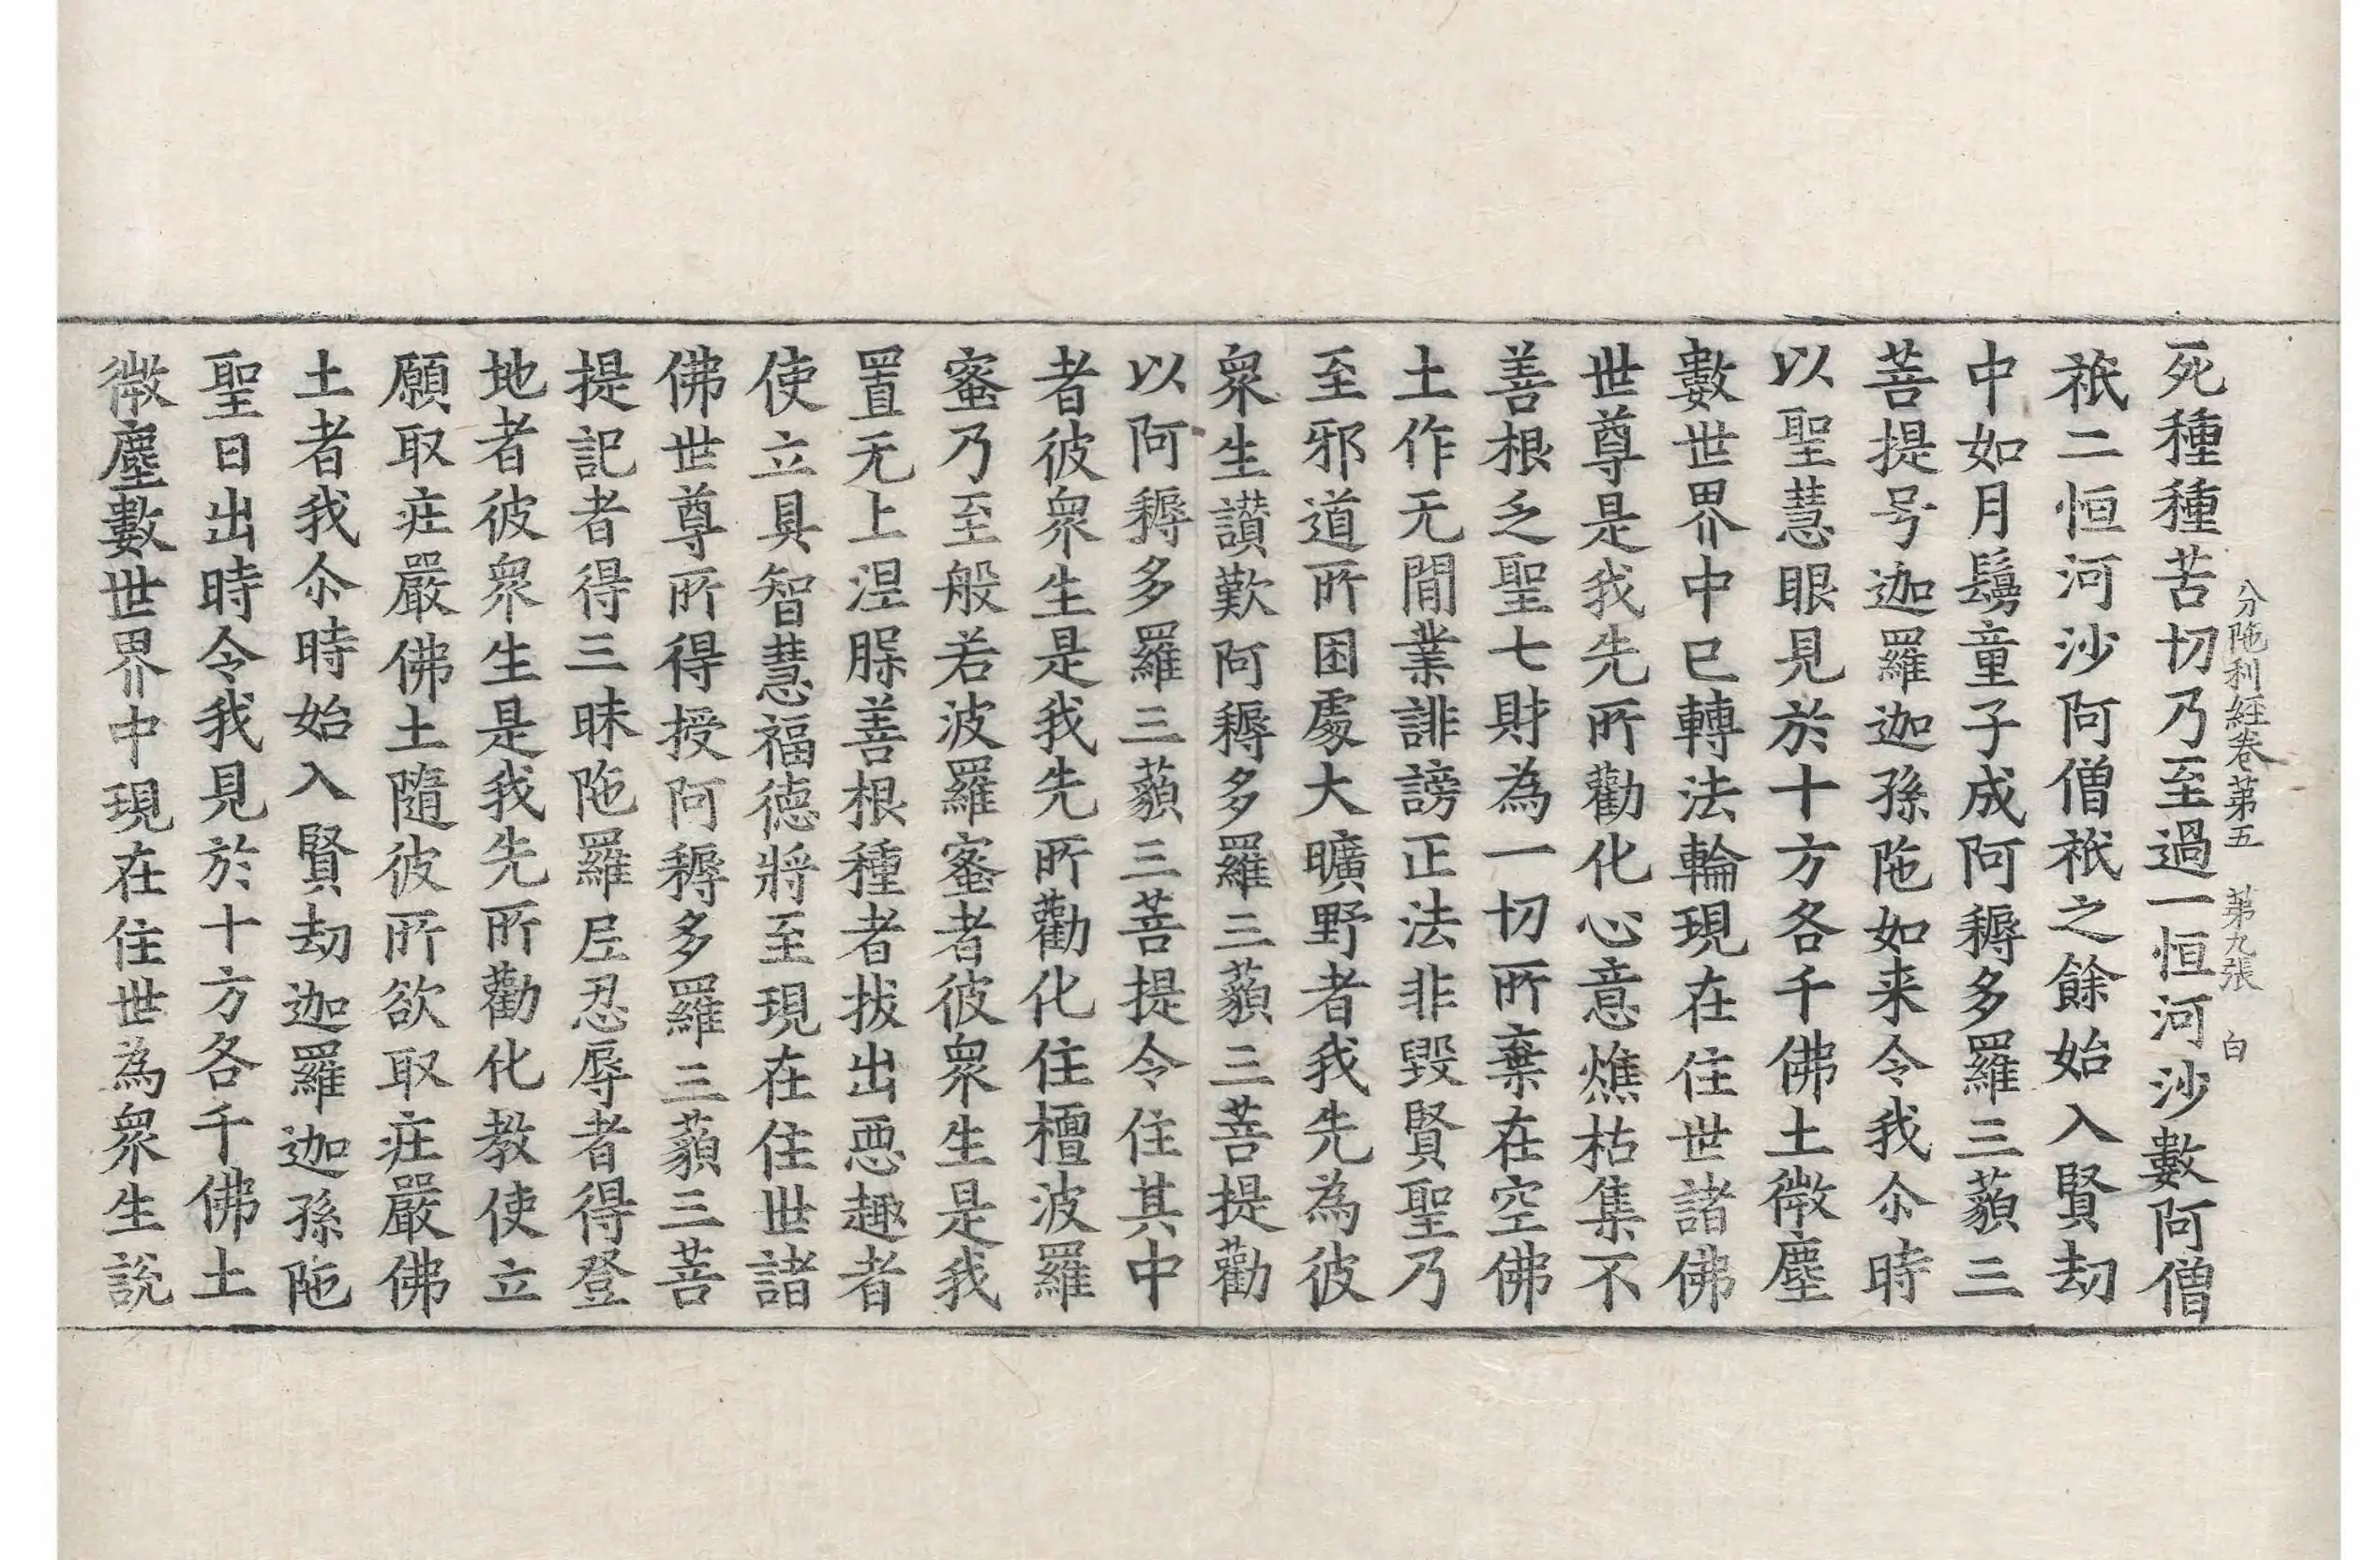 分陁利經卷第五　第九張　白
死種種苦切乃至過一恒河沙數阿僧
祇二恒河沙阿僧祇之餘始入賢劫
中如月鬘童子成阿耨多羅三藐三
菩提号迦羅迦孫陁如来令我尒時
以聖慧眼見於十方各千佛土微塵
數世界中已轉法輪現在住世諸佛
世尊是我先所勸化心意燋枯集不
善根乏聖七財為一切所棄在空佛
土作无間業誹謗正法非毀賢聖乃
至邪道所困處大曠野者我先為彼
眾生讃歎阿耨多羅三藐三菩提勸
以阿耨多羅三藐三菩提令住其中
者彼眾生是我先所勸化住檀波羅
蜜乃至般若波羅蜜者彼眾生是我
置无上涅槃善根種者拔出惡趣者
使立具智慧福德將至現在住世諸
佛世尊所得授阿耨多羅三藐三菩
提記者得三昧陁羅尼忍辱者得登
地者彼眾生是我先所勸化教使立
願取莊嚴佛土隨彼所欲取莊嚴佛
土者我尒時始入賢劫迦羅迦孫陁
聖日出時令我見於十方各千佛土
微塵數世界中現在住世為眾生説